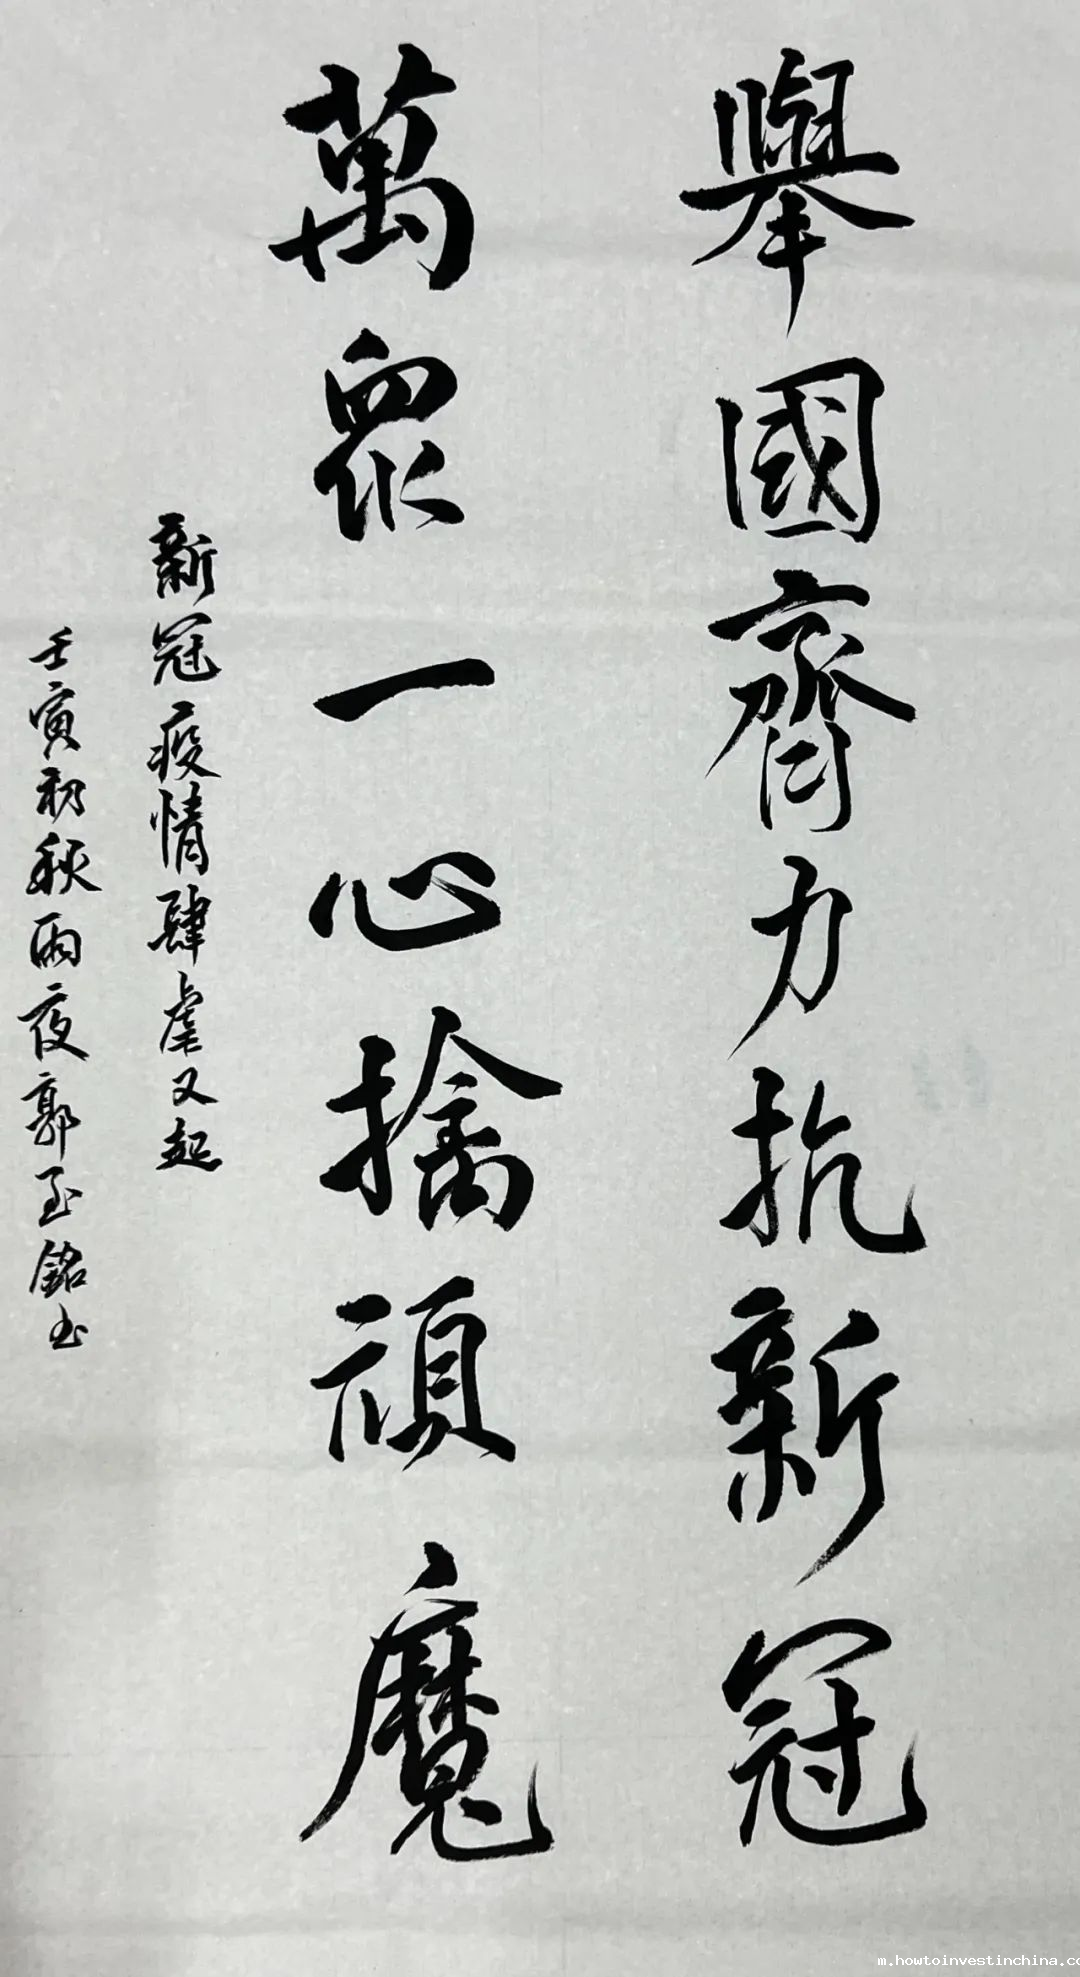 舉國齊力抗新冠
萬眾一心擒頑魔
新冠疫情肆虐又起
壬寅初秋雨夜郭玉銘书
m.howtoinvestinchina.co